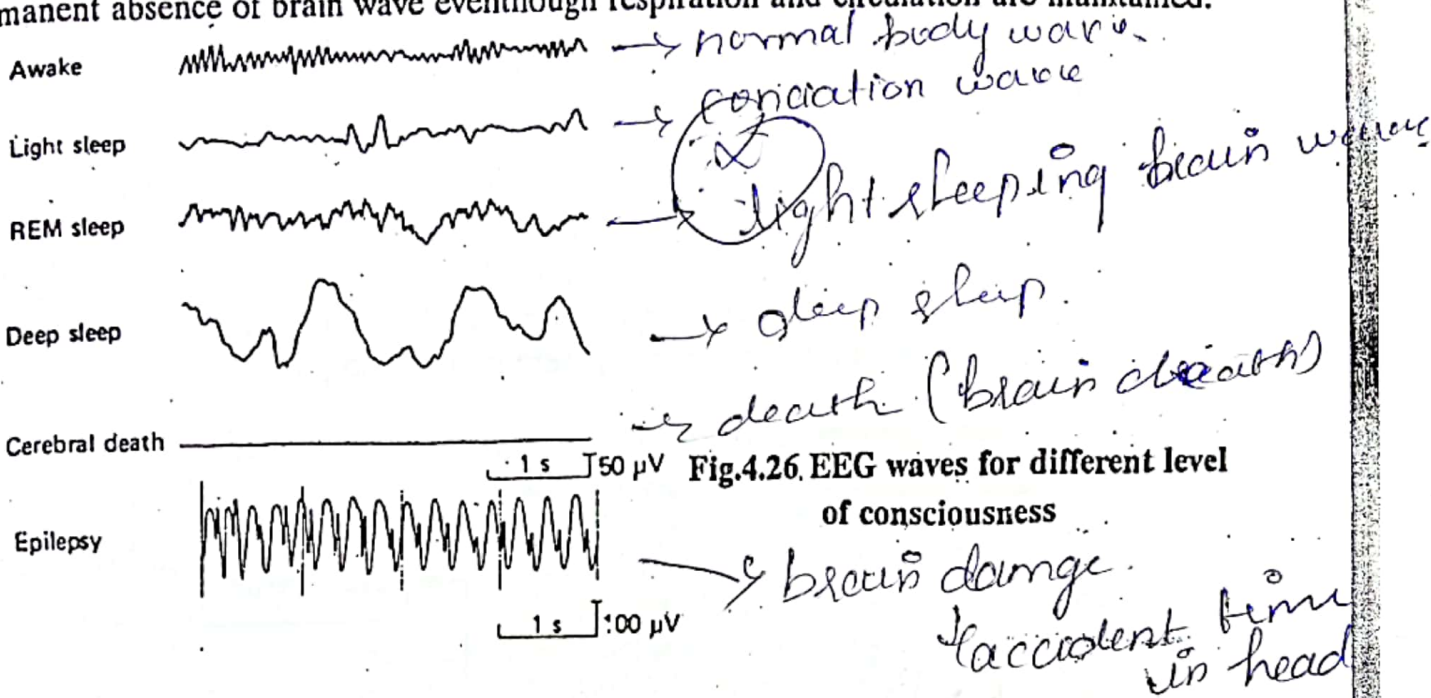 manent absence of brain wave eventhough respiration and circulation are maintained.
Awake → normal body
Light sleep → wave
REM sleep → light sleeping brain
Deep sleep → deep sleep.
Cerebral death → death (brain death)
1 s 50 μV Fig.4.26. EEG waves for different level
of consciousness
Epilepsy → brain damge.
1 s 100 μV
accident time
in head